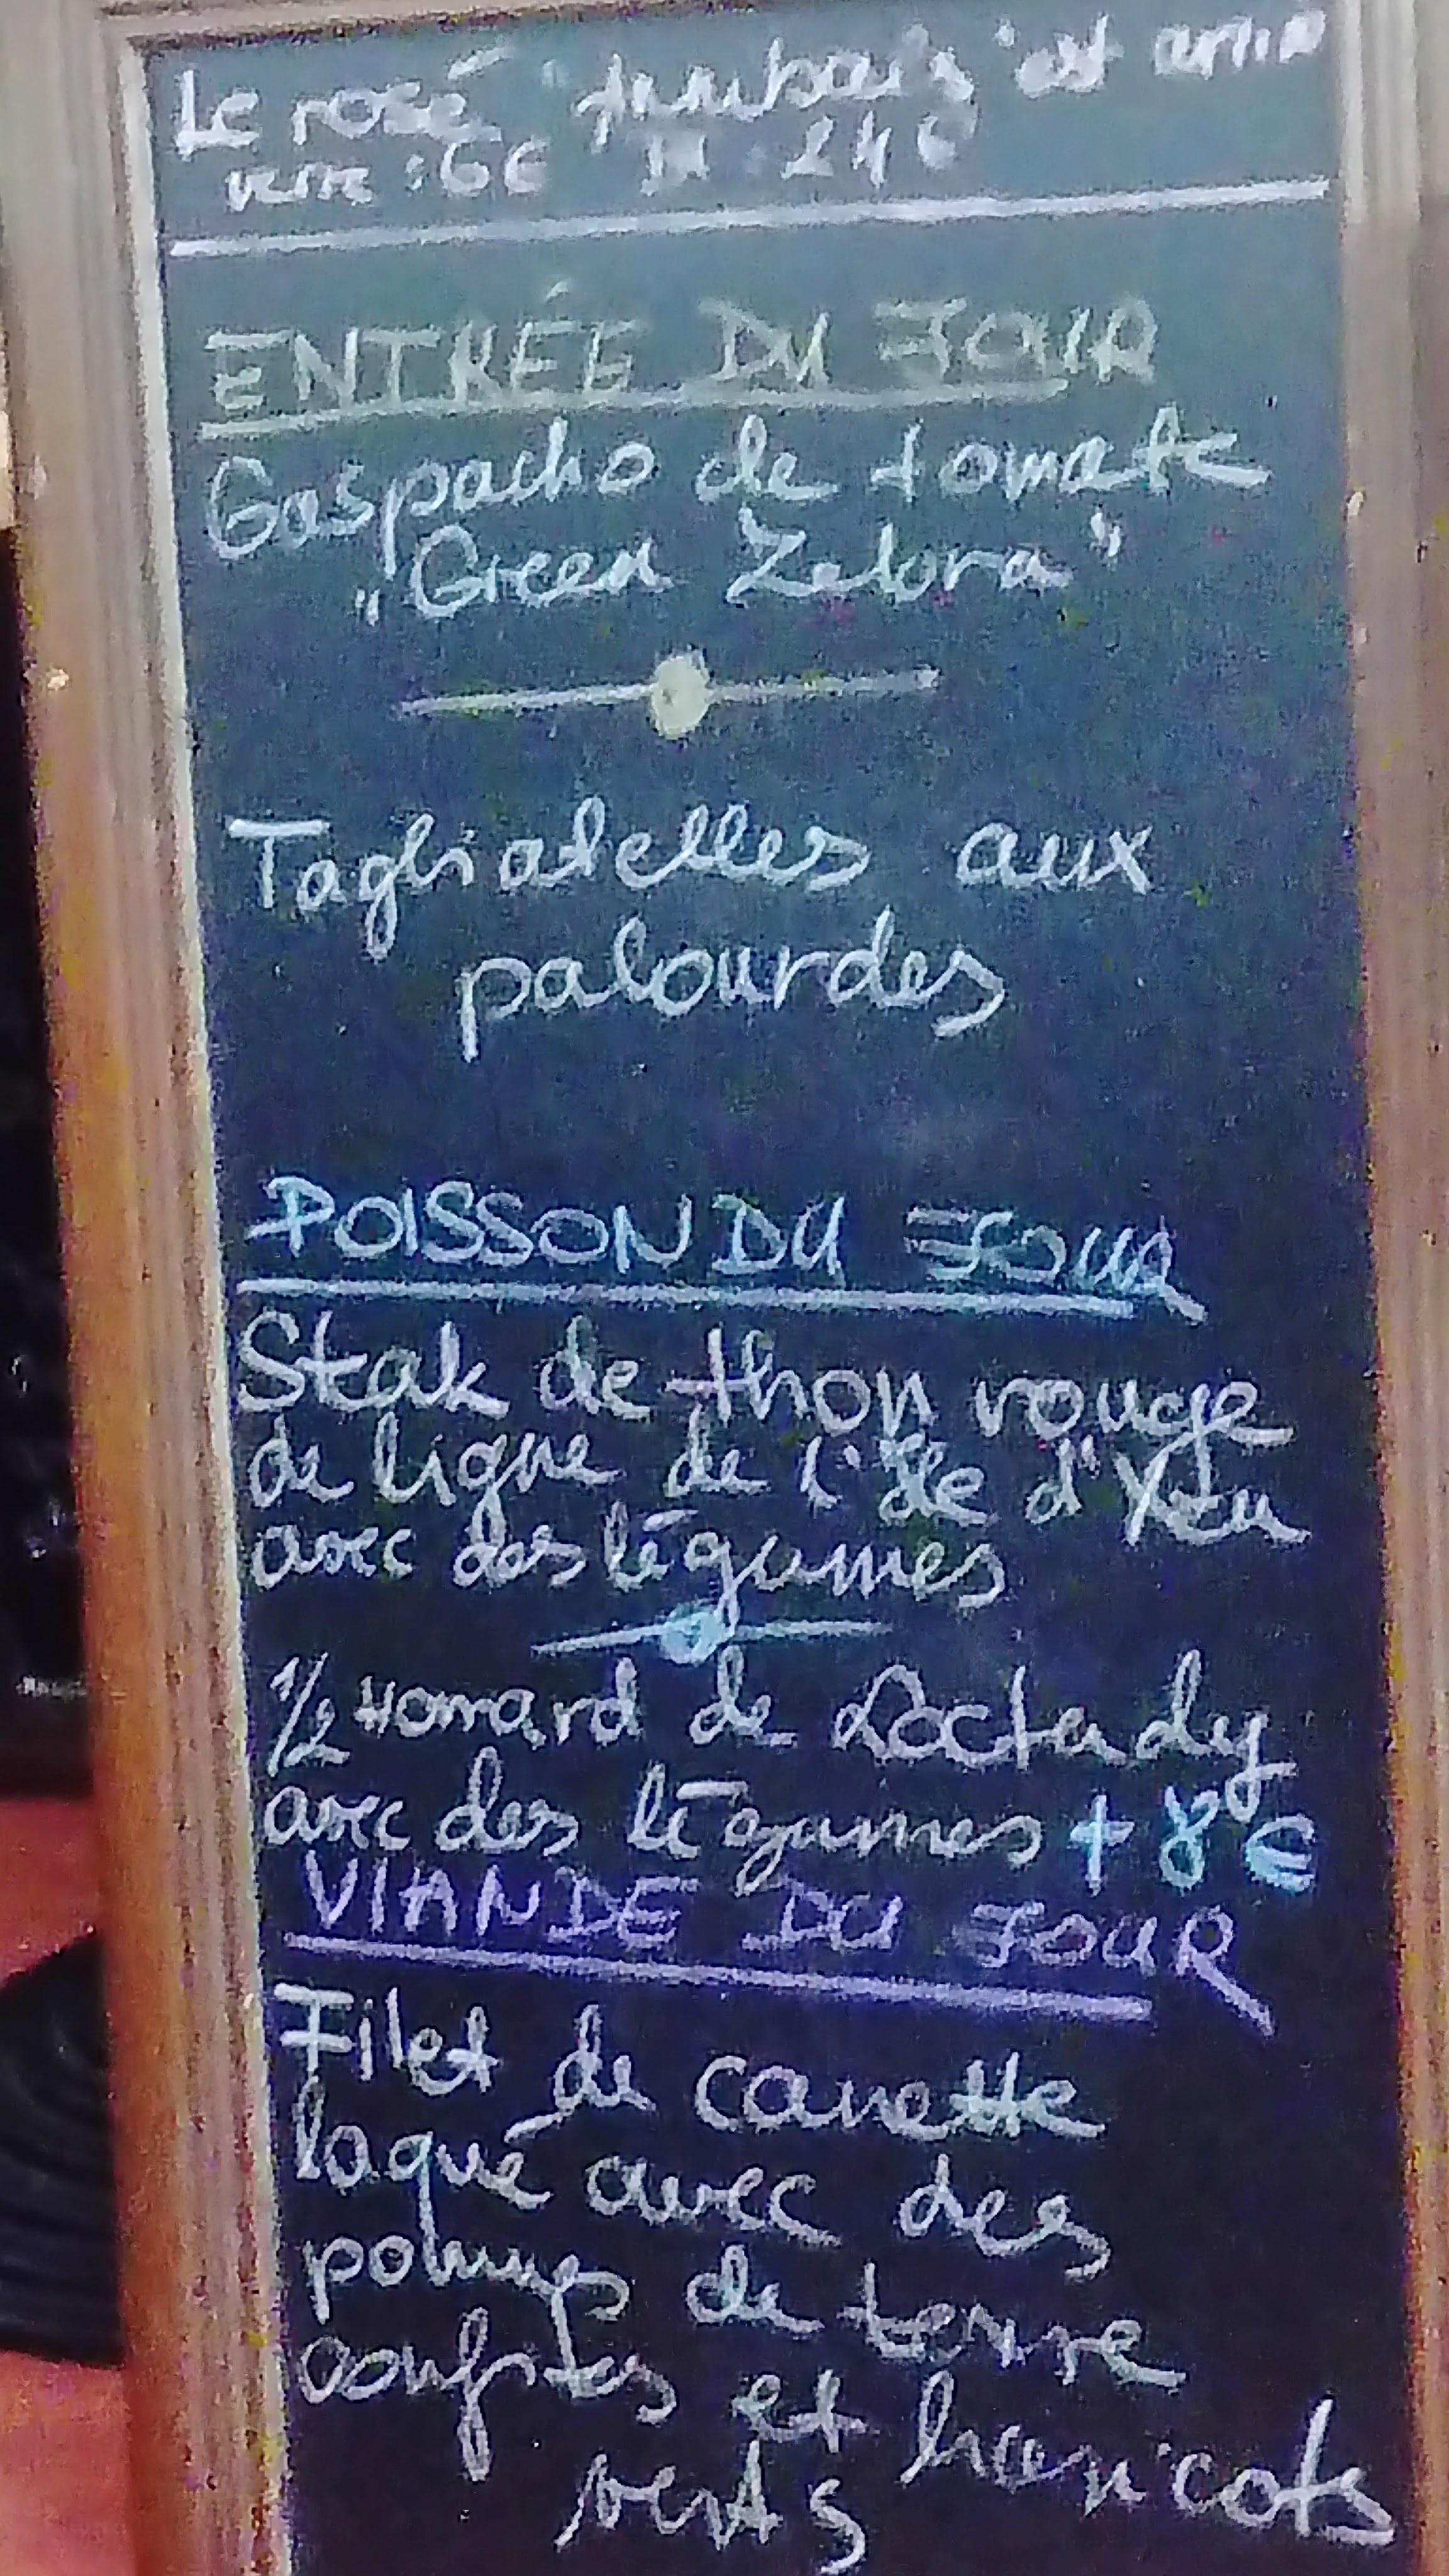 Le rosé "framboise" est arrivé
verre : 6€ 24€
ENTRÉE DU JOUR
Gaspacho de tomate
"Green Zebra"
Tagliatelles aux
palourdes
POISSON DU JOUR
Steak de thon rouge
de ligne de l'Île d'Yeu
avec des légumes
1/2 Homard de Loctudy
avec des légumes + 8€
VIANDE DU JOUR
Filet de canette
laqué avec des
pommes de terre
confites et haricots
verts